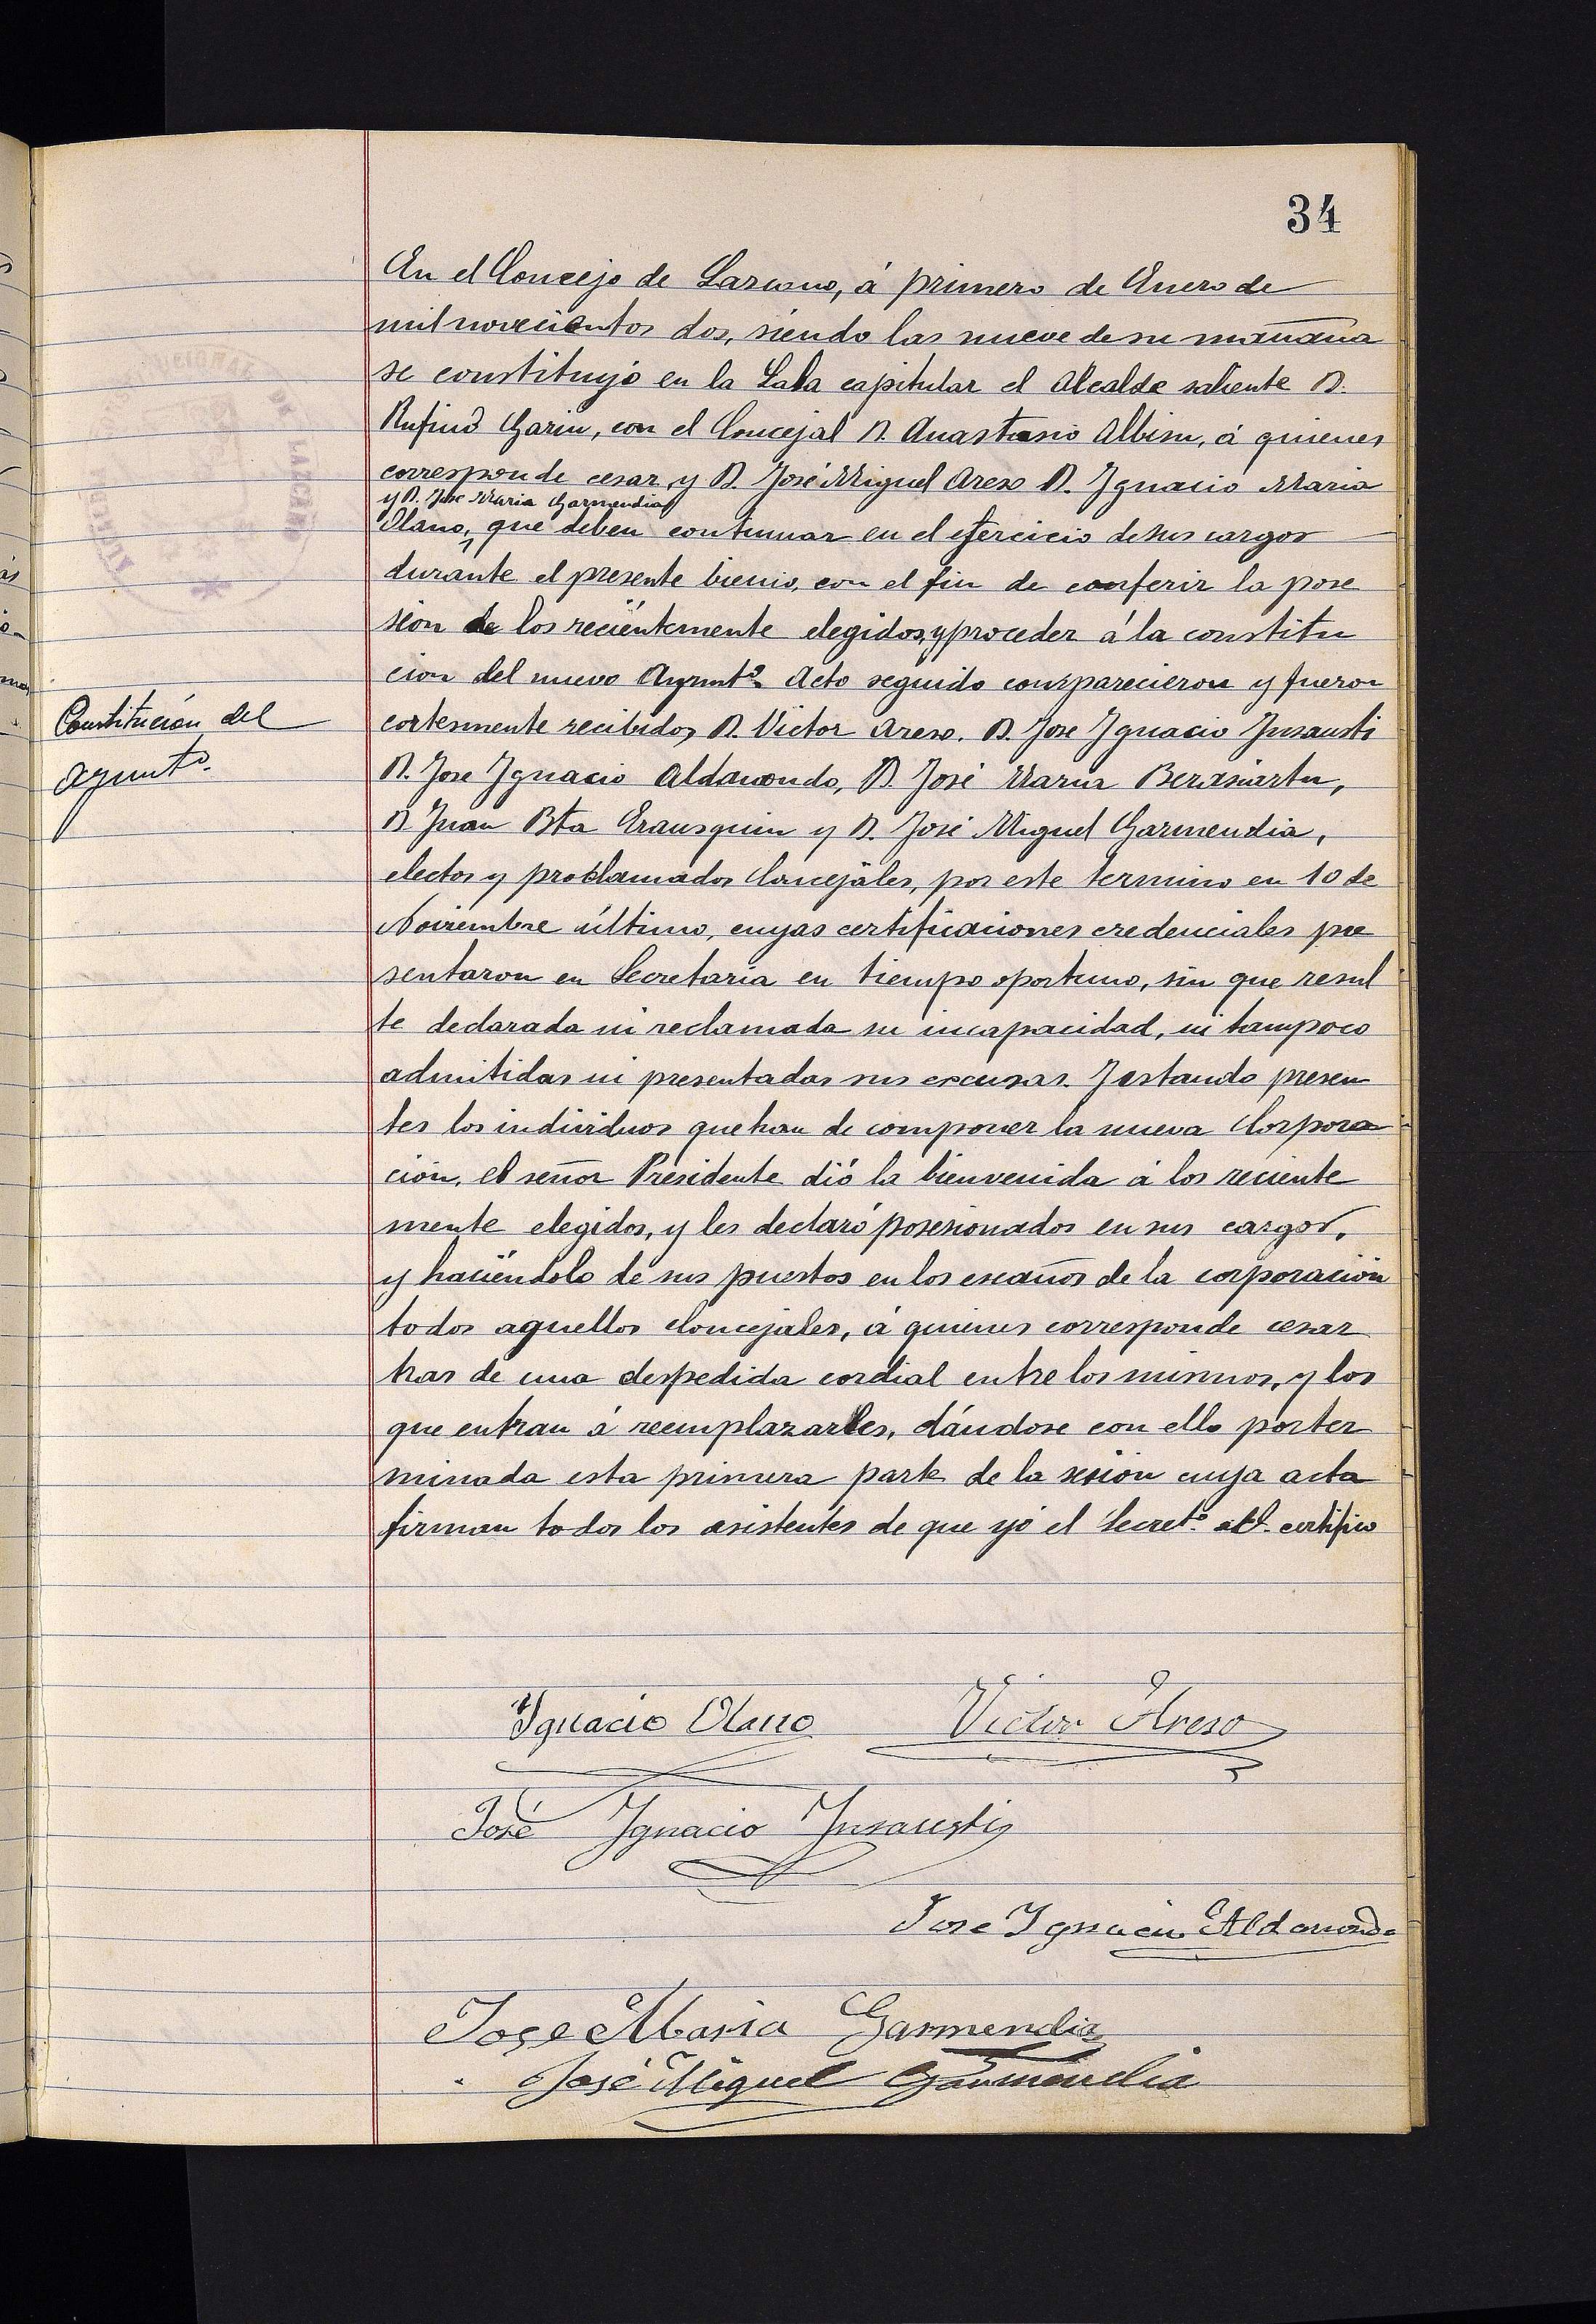 34
En el Concejo de Lazcano, á primero de Enero de
mil novecientos dos, siendo las nueve de su mañana
se constituyó en la Sala capitular el Alcalde saliente D.
Rufino Garin, con el Concejal D. Anastasio Albisu, á quienes
corresponde cesar, y D. José Miguel Areso D. Ignacio Maria
y D. Jose Maria Garmendia
Olano, que deben continuar en el ejercicio de sus cargos
durante el presente bienio, con el fin de conferir la pose
sion de los recientemente elegidos, y proceder á la constitu
cion del nuevo Ayunt.º Acto seguido comparecieron y fueron
Constitución del
cortesmente recibidos D. Victor Areso. D. Jose Ignacio Insausti
ayunt.º
D. Jose Ignacio Aldasondo, D. José Maria Berasiartu,
D Juan Bta Erausquin y D. José Miguel Garmendia,
electos y proclamados Concejales, por este termino en 10 de
Noviembre último, cuyas certificaciones credenciales pre
sentaron en Secretaria en tiempo oportuno, sin que resul
te declarada ni reclamada su incapacidad, ni tampoco
admitidas ni presentadas sus excusas. Y estando presen
tes los individuos que han de componer la nueva Corpora
ción, el señor Presidente dió la bienvenida á los reciente
mente elegidos, y les declaró posesionados en sus cargos,
y haciéndolo de sus puestos en los escaños de la corporación
todos aquellos Concejales, á quienes corresponde cesar
tras de una despedida cordial entre los mismos, y los
que entran á reemplazarles, dándose con ello por ter
minada esta primera parte de la sesion cuya acta
firman todos los asistentes de que yó el Secret.º certifico
Ignacio Olano Victor Areso
José Ignacio Insausti
Jose Ignacio Aldasondo
Jose Maria Garmendia
José Miguel Garmendia